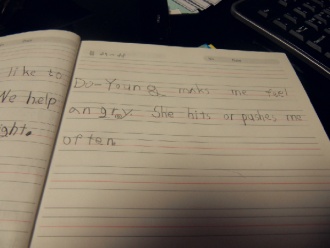 like to
We help
ight.
Do-Young maks me feel
angrey. She hits or pushes me
often.